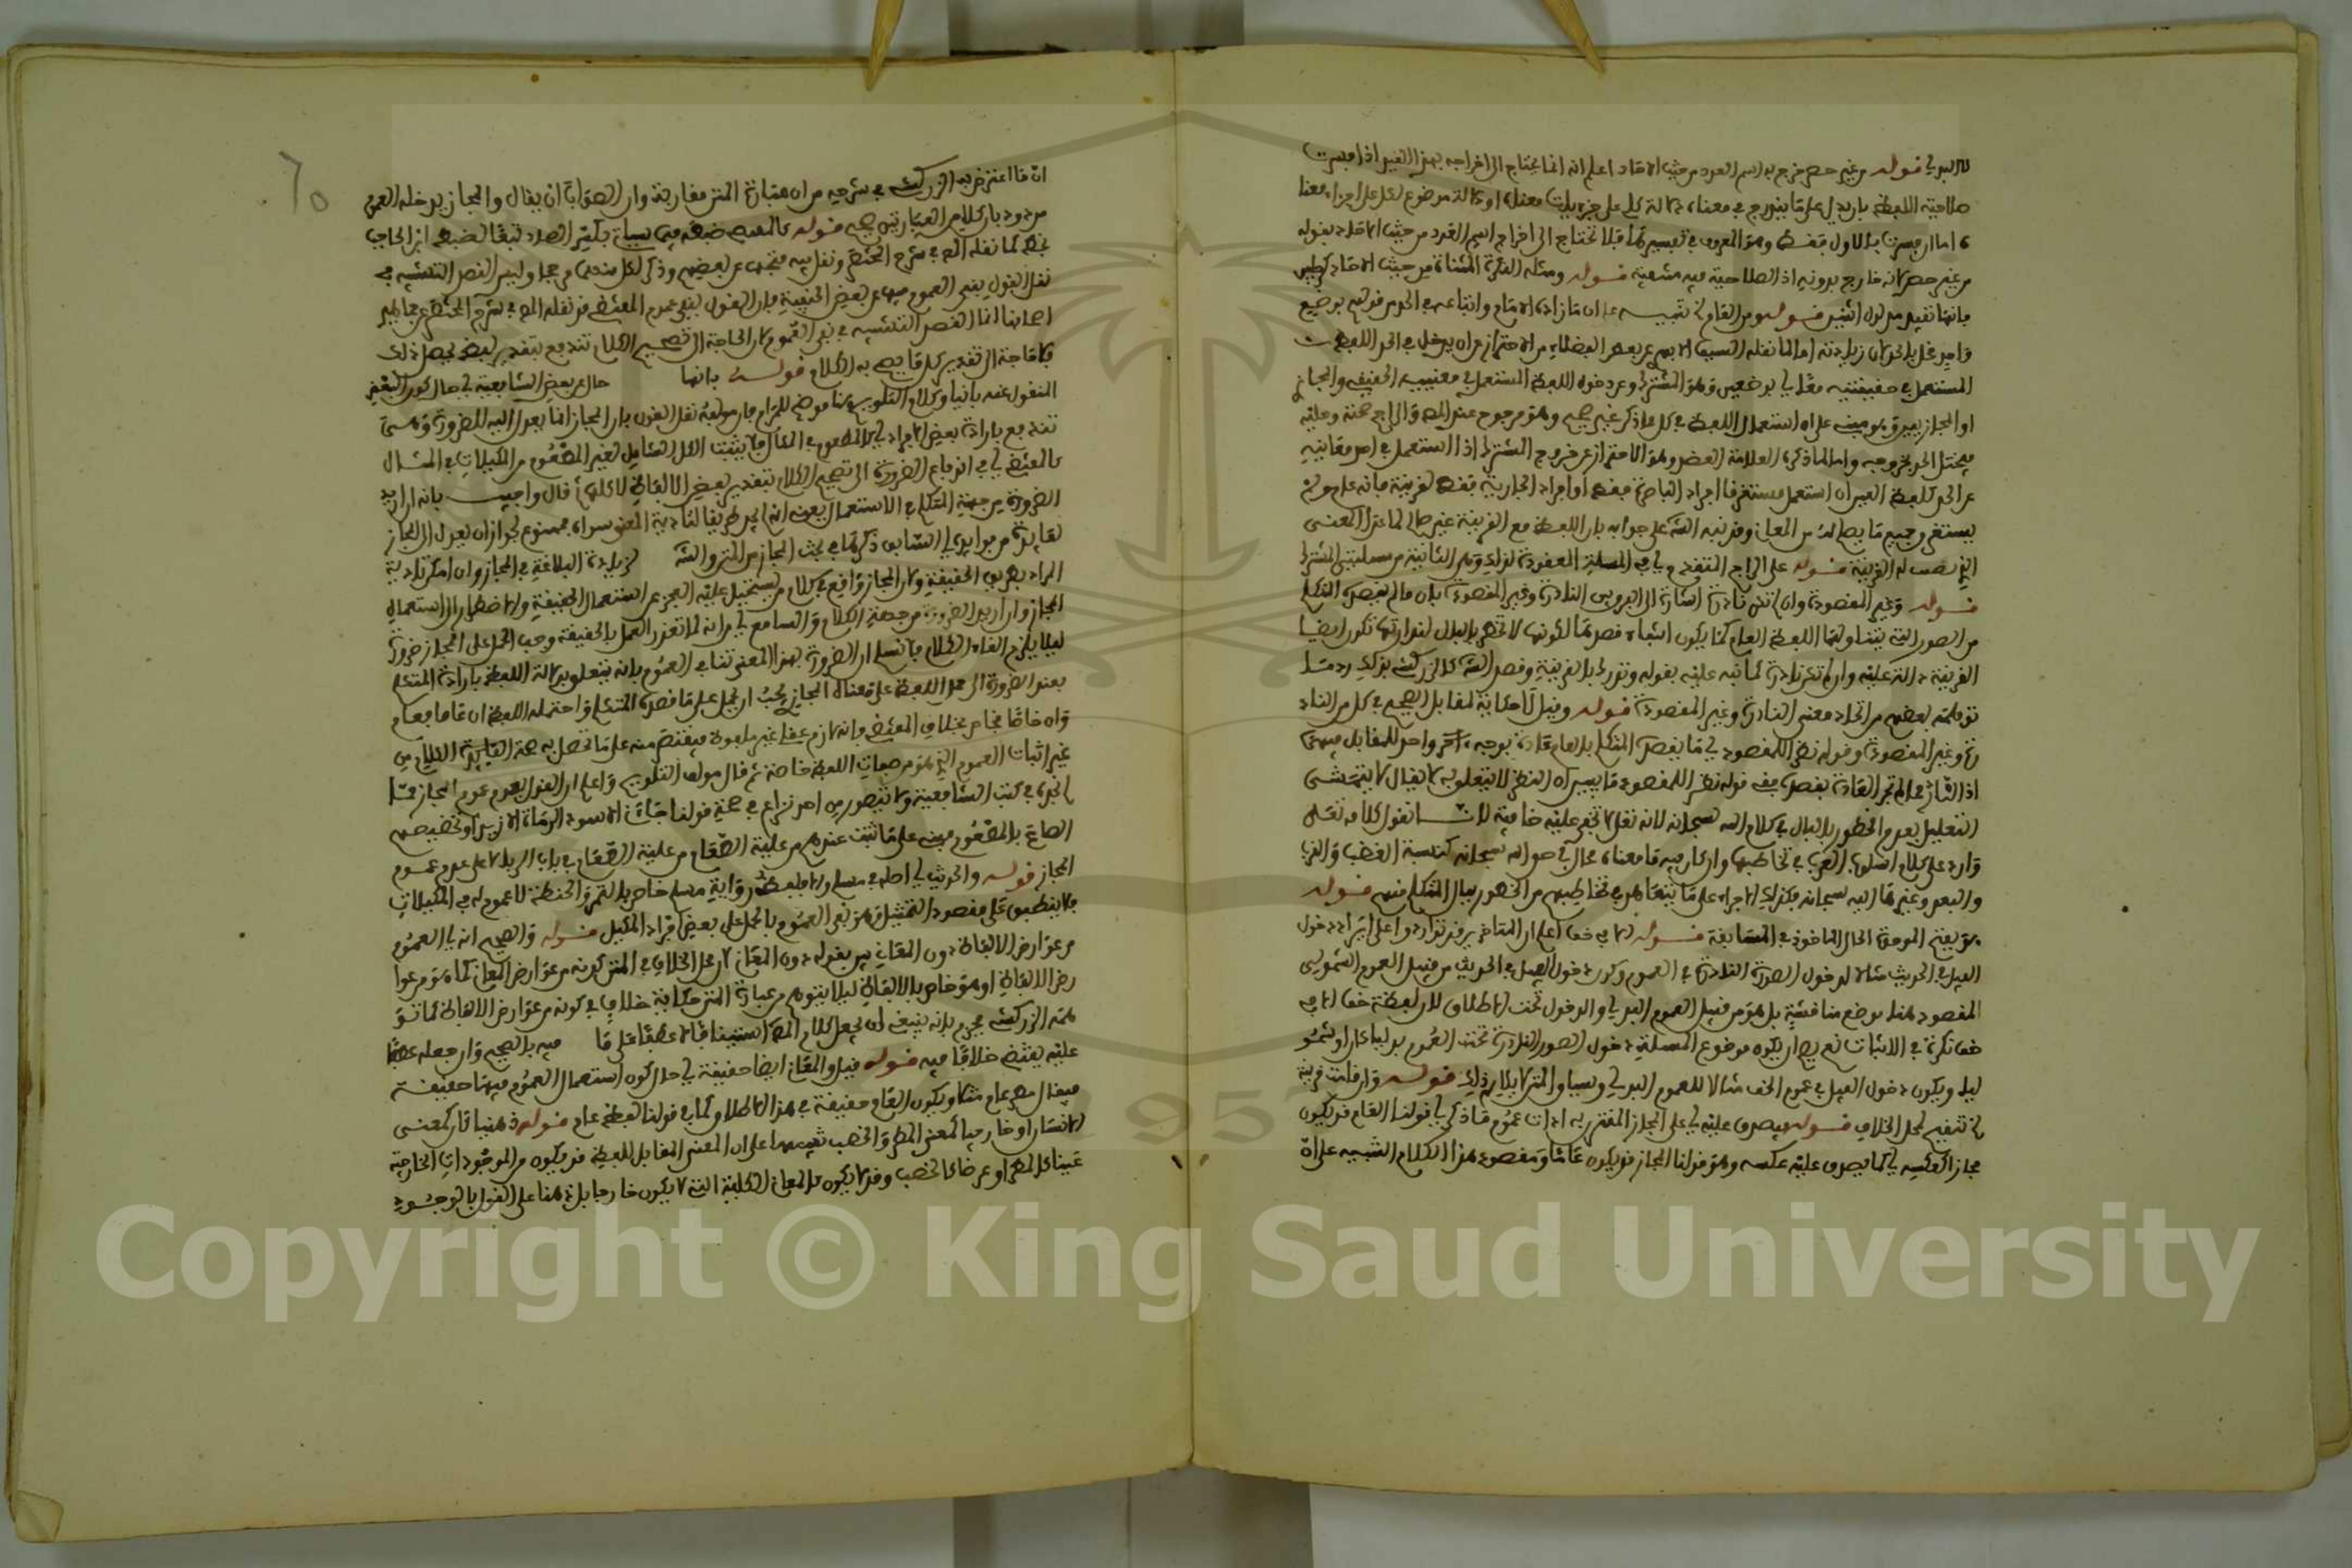 لا البدلي قوله من غير حصر خرج به اسم العدد من حيث الاحاد اعلم انه انما يحتاج الى اخراجه بهذا القيد اذا فسرت
صلاحية اللفظ بان يدل على ما يندرج في معناه دلالة كلي على جزءيات معناه او دلالة موضوع لكل على اجزاء معناه
اما ان فسرت بالاول فقط وهو المعروف في تفسيرها فلا تحتاج الى اخراج اسم العدد من حيث الاحاد بقوله
من غير حصر لانه خارج بدونه اذ الصلاحية فيه منتفية قوله ومثله النكرة المثناة من حيث الاحاد كرجلين
فانها تفيد مدلول اثنين قوله ومن العام تنبيه على ان ما زاده الامام واتباعه في الحد من قولهم بوضع
واحد مخل بالحد لان زيادته اما لما نقله السيف الابهري عن بعض الفضلاء من الاحتراز من ان يدخل في الحد اللفظ
المستعمل في حقيقتيه معا اي بوضعين وهو المشترك وعن دخول اللفظ المستعمل في معنييه الحقيقي والمجازي
او المجازيين وهو مبني على ان استعمال اللفظ في كل ما ذكر غير صحيح وهو مرجوح عند المص والراجح صحته وعليه
فيختل الحد بخروجه واما لما ذكره العلامة العضد وهو الاحتراز عن خروج المشترك اذا استعمل في احد معانيه
عن الحد كلفظ العين ان استعمل مستغرقا افراد الباصرة فقط او افراد الجارية فقط لقرينة فانه عام ولا
يستغرق جميع ما يصلح له من المعاني وقد نبه الش على جوابه بان اللفظ مع القرينة غير صالح لما عدا المعنى
الذي نصب له القرينة قوله على الراجح المتقدم اي في المسئلة المعقودة لذلك وهي الثانية من مسئلتي المشترك
قوله وغير المقصودة وان لم تكن نادرة اشارة الى الفرق بين النادرة وغير المقصودة بان ما لم يقصده المتكلم
من الصور التي يتناولها اللفظ العام كما يكون انتفاء قصدها لكونها لا تخطر بالبال لندارتها تكون ايضا
القرينة دالة عليه وان لم تكن نادرة كما نبه عليه بقوله وتدرك بالقرينة وقصد الش كالزركشي بذلك رد ما
توهمه بعضهم من اتحاد معنى النادرة وغير المقصودة قوله وقيل لا حكاية لمقابل الصحيح في كل من النادرة
وغير المقصودة وقوله نظرا للمقصود اي ما يقصده المتكلم بالعام عادة يوجه امر واحد للمقابل فيهما
اذ النادر مما لم تجر العادة بقصده ففي قوله نظرا للمقصود ما يبين ان النظر لا يتعلق به لا يقال لا يتمشى
التعليل بعدم الخطور بالبال في كلام الله سبحانه لانه تعالى لا تخفى عليه خافية لانا نقول كلامه تعالى
وارد على كلام اسلوب العرب في تخاطبها وان كان فيه ما معناه محال في حق الله سبحانه كنسبة الغضب والترجي
والبعد وغيرها اليه سبحانه فكذلك اجراء على ما يتعاهد في تخاطبهم من الخطور ببال المتكلم منهم قوله
هو بفتح الموحدة الحال الماخوذ في المسابقة قوله الا في خف اعلم ان المتاخرين قد تواردوا على ايراد دخول
الفيل في الحديث مثالا لدخول الصورة النادرة في العموم وكون دخول الفيل في الحديث من قبيل العموم الشمولي
المقصود هنا موضع مناقشة بل هو من قبيل العموم البدلي والدخول تحت الاطلاق لان لفظة خف الا في
خف نكرة في الاثبات نعم يصح ان يكون موضوع المسئلة دخول الصور النادرة تحت العموم بدليا كان او شمو
ليا ويكون دخول الفيل في عموم الخف مثالا للعموم البدلي وسياق المتن لا يلائم ذلك قوله وان قامت قرينة
تنقيح لمحل الخلاف قوله ويصدق عليه اي على المجاز المقترن به ادات عموم ما ذكر اي قولنا العام قد يكون
مجازا كعكسه اي كما يصدق عليه عكسه وهو قولنا المجاز قد يكون عاما ومقصود هذا الكلام التنبيه على ان
٦٥
ان ما اعترض به الزركشي في شرحه من ان عبارة المتن مقلوبة وان الصواب ان يقال والمجاز يدخله العموم
مردود بان كلام العبارتين صحيح قوله كالمقتضى ضبطه فيما سياتي بكسر الضاد تبعا لضبط ابن الحاجب
بخطه كما نقله المص في شرح المختصر ونقل فيه فتحها عن بعضهم وذكر لكل منهما وجها وليس القصد التشبيه في
نقل القول بنفي العموم فيها عن بعض الحنفية فان القول بنفي عموم المقتضى قد نقله المص في شرح المختصر عن جماهير
اصحابنا انما القصد التشبيه في نفي العموم لان الحاجة الى تصحيح الكلام تندفع بتقدير بعض يحصل ذلك
فلا حاجة الى تقدير كل ما يصح به الكلام قوله بانها حال عن بعض الشافعية اي حال كون البعض
المنقول عنه بانيا وكلام التلويح هنا موضح للمرام فان مولفه نقل القول بان المجاز انما يعدل اليه للضرورة وهي
تندفع بارادة بعض الافراد اي كالمطعوم في المثال فلا يثبت الكل الشامل لغير المطعوم من المكيلات في المثال
كالمقتضى اي في اندفاع الضرورة الى تصحيح الكلام بتقدير بعض الالفاظ لا كلها قال واجيب بانه ان اريد
الضرورة من جهة المتكلم في الاستعمال بمعنى انه لم يجد طريقا لتادية المعنى سواه فممنوع لجواز ان يعدل الى المجاز
لفائدة من فوائده اي السابق ذكرها في بحث المجاز من المتن والش كزيادة البلاغة في المجاز وان امكن تادية
المراد بطريق الحقيقة ولان المجاز واقع في كلام من يستحيل عليه العجز عن استعمال الحقيقة والاضطرار الى استعمال
المجاز وان اريد الضرورة من جهة الكلام والسامع اي من انه لما تعذر العمل بالحقيقة وجب الحمل على المجاز ضرورة
ليلا يلزم الغاء الكلام فلا نسلم ان الضرورة بهذا المعنى تنافي العموم فانه يتعلق بدلالة اللفظ بارادة المتكلم
فعند الضرورة الى حمل اللفظ على معناه المجازي يجب ان يحمل على ما قصده المتكلم واحتمله اللفظ ان عاما فعام
وان خاصا فخاص بخلاف المقتضى فانه لازم عقلي غير ملفوظ فيقتصر منه على ما تحصل به صحة الكلام من
غير اثبات العموم الذي هو من صفات اللفظ خاصة ثم قال مولف التلويح واعلم ان القول بعدم عموم المجاز مما
لم نجده في كتب الشافعية ولا يتصور من احد نزاع في صحة قولنا جاءني الاسود الرماة الا زيدا وتخصيصهم
الصاع بالمطعوم مبني على ما ثبت عندهم من علية الطعام في باب الربا لا على عدم عموم
المجاز قوله والحديث اي اصله في مسلم ولا بلفظ رواية مسلم خاص بالتمر والحنطة لا عموم له في المكيلات
فلا ينطبق على مقصود التمثيل وهو نفي العموم بالحمل على بعض افراد المكيل قوله والصحيح انه اي العموم
من عوارض الالفاظ دون المعاني بين بقوله دون المعاني ان محل الخلاف في المتن كونه من عوارض المعاني كما هو من عوا
رض الالفاظ او هو خاص بالالفاظ ليلا يتوهم من عبارة المتن حكاية خلاف في كونه من عوارض الالفاظ كما تو
همه الزركشي فجزم بانه ينبغي ان يجعل كلام المص استينافا لا عطفا على ما فيه بالصحيح وان جعله عطفا
عليه يقتضي خلافا فيه قوله قيل والمعاني ايضا حقيقة اي حال كون استعمال العموم فيها حقيقة
فيقال معنى عام مثلا ويكون العام حقيقة في هذا الاطلاق كما في قولنا لفظ عام قوله ذهنيا كان كمعنى
الانسان او خارجيا كمعنى المطر والخصب تنبيه على ان المعنى المقابل للفظ قد يكون من الموجودات الخارجية
عينا كالمطر او عرضا كالخصب وقد لا يكون كالمعاني الكلية التي لا يكون خارجا بل ذهنا على القول بالوجود
Copyright © King Saud University
1957